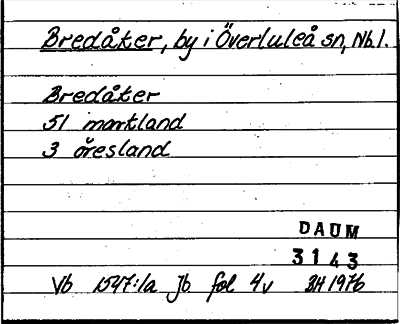 Bredåker, by i Överluleå sn, Nb.l.
Bredåker
51 markland
3 öresland
DAUM
3143
Vb 1547:1a Jb fol 4v BH 1976